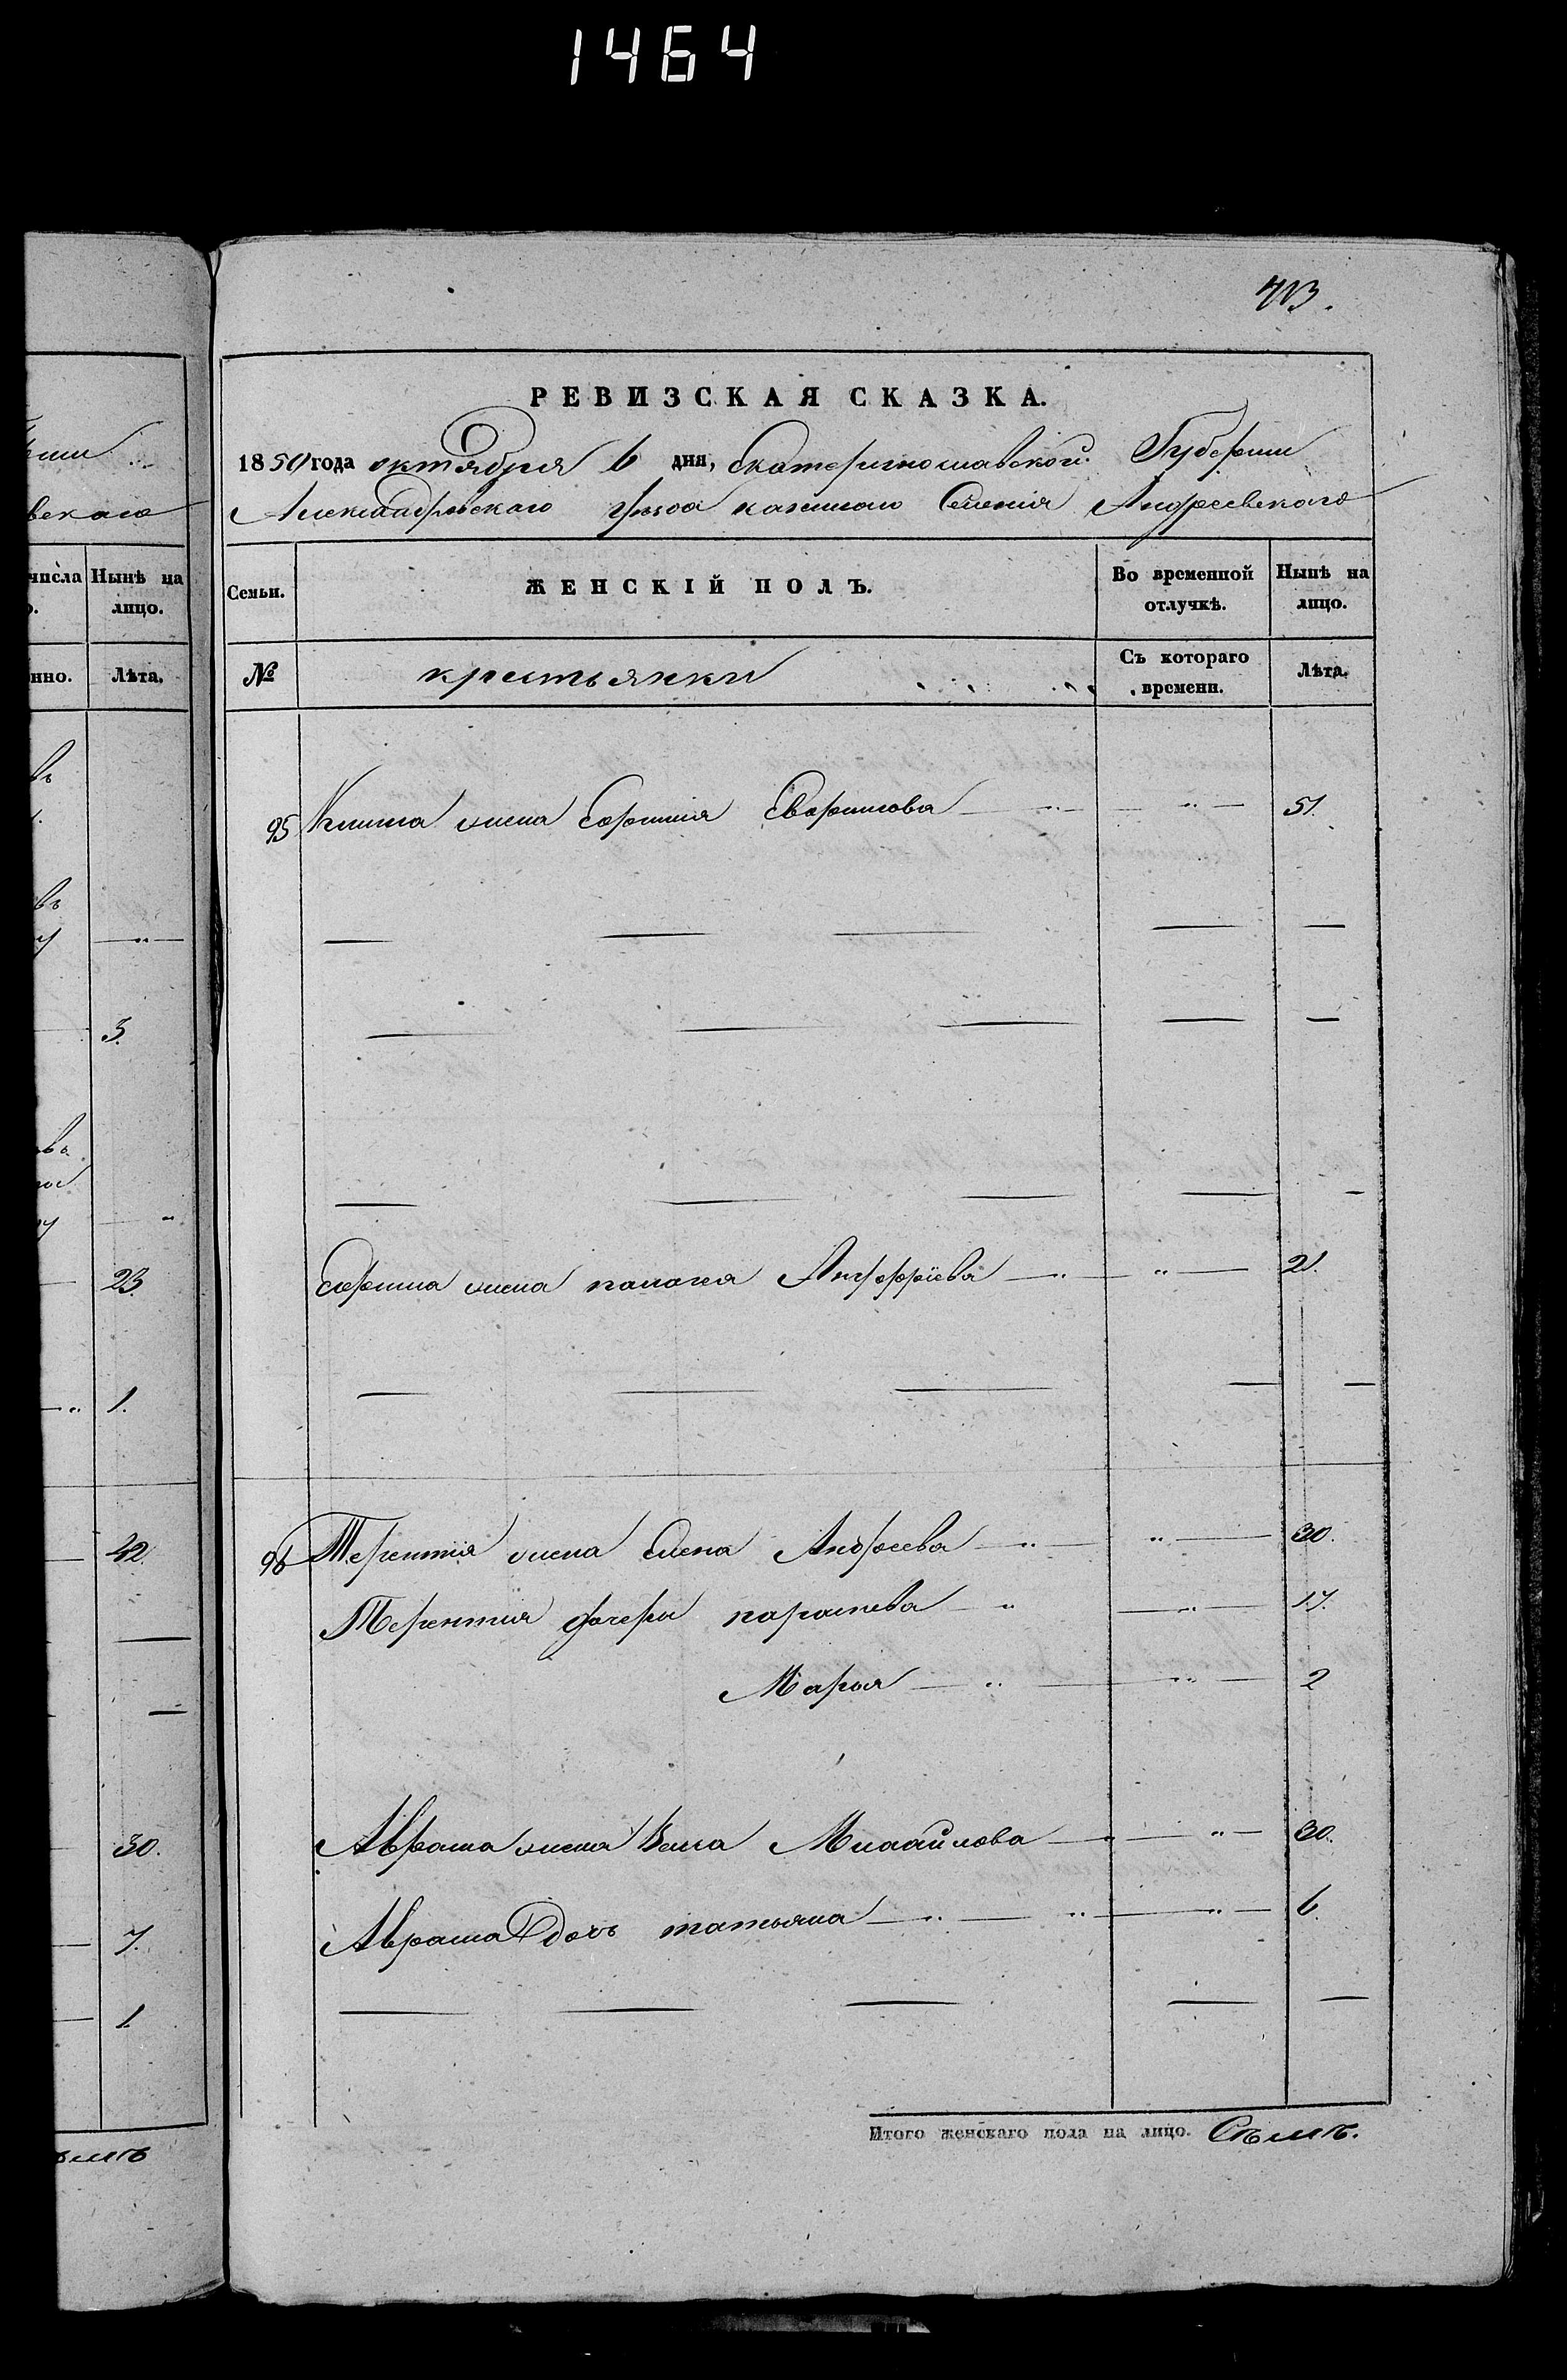 1464
413.
РЕВИЗСКАЯ СКАЗКА.
1850 года октября 6 дня, Екатеринославской Губернiи
Александровскаго уѣзда казеннаго Селенiя Андреевского
Семьи.
ЖЕНСКІЙ ПОЛЪ.
Во временной отлучкѣ.
Нынѣ на лицо.
№
крестьянки
Съ котораго времени.
Лѣта.
95 жена 51.
жена 21.
96 Терентiя жена Елена Андреева 30.
Терентiя дочери парасkева 17.
Марья 2
Аврама жена Михайлова 30.
Аврама дочь татьяна 6.
Итого женскаго пола на лицо. Семь.
числа
Нынѣ на
лицо.
нно.
Лѣта.
3.
23.
1.
42.
30.
7.
1.